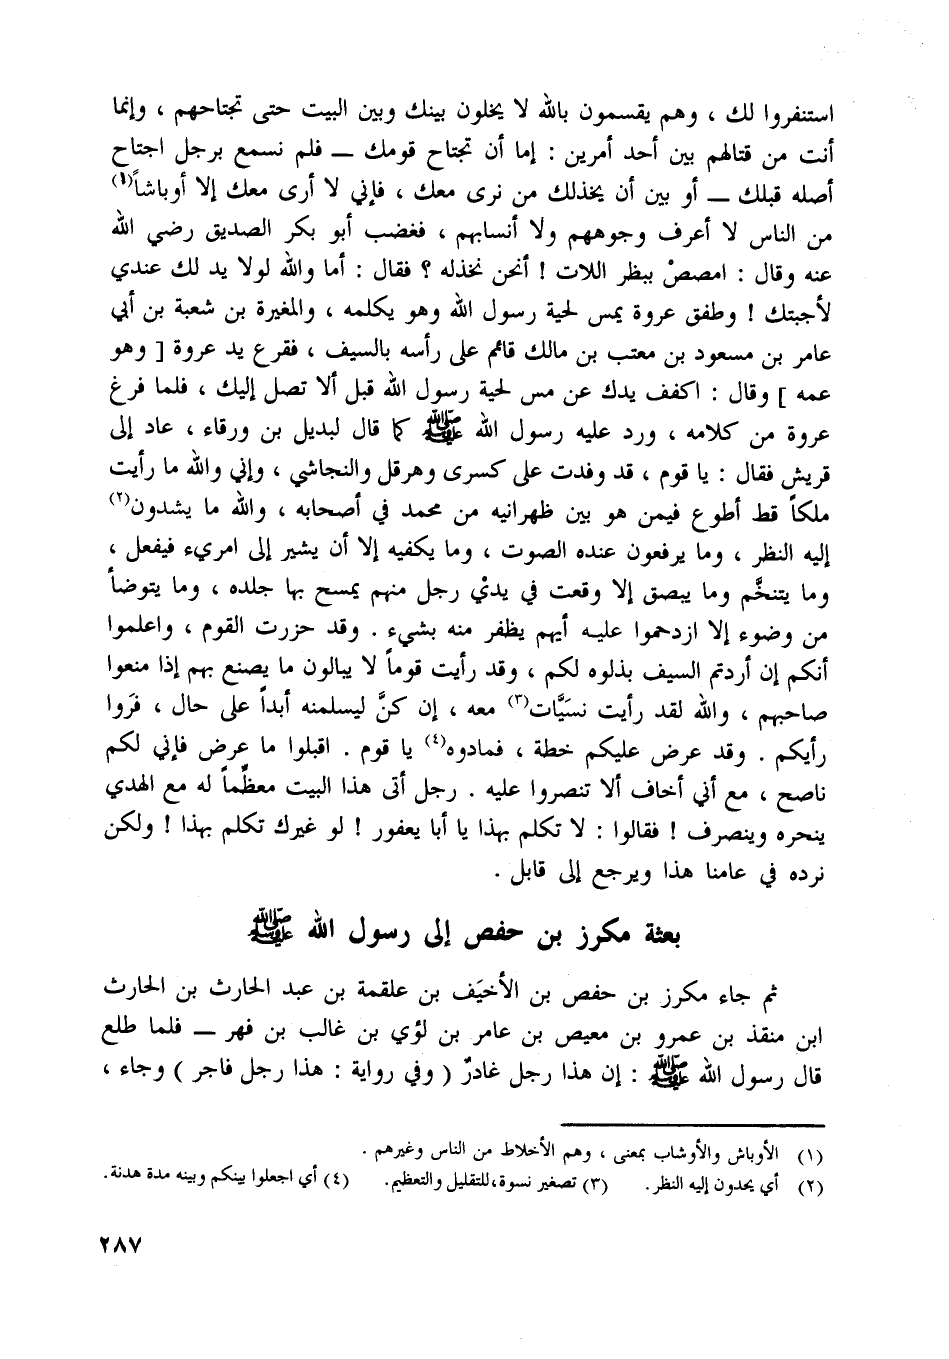 استنفروا لك ، وهم يقسمون بالله لا يخلون بينك وبين البيت حتى تجتاحهم ، وإنما
أنت من قتالهم بين أحد أمرين : إما أن تجتاح قومك ــ فلم نسمع برجل اجتاح
أصله قبلك ــ أو بين أن يخذلك من نرى معك ، فإني لا أرى معك إلا أوباشاً(١)
من الناس لا أعرف وجوههم ولا أنسابهم ، فغضب أبو بكر الصديق رضي الله
عنه وقال : امصصْ ببظر اللات ! أنحن نخذله ؟ فقال : أما والله لولا يد لك عندي
لأجبتك ! وطفق عروة يمس لحية رسول الله وهو يكلمه ، والمغيرة بن شعبة بن أبي
عامر بن مسعود بن معتب بن مالك قائم على رأسه بالسيف ، فقرع يد عروة [ وهو
عمه ] وقال : اكفف يدك عن مس لحية رسول الله قبل ألا تصل إليك ، فلما فرغ
عروة من كلامه ، ورد عليه رسول الله ﷺ كما قال لبديل بن ورقاء ، عاد إلى
قريش فقال : يا قوم ، قد وفدت على كسرى وهرقل والنجاشي ، وإني والله ما رأيت
ملكاً قط أطوع فيمن هو بين ظهرانيه من محمد في أصحابه ، والله ما يشدون(٢)
إليه النظر ، وما يرفعون عنده الصوت ، وما يكفيه إلا أن يشير إلى امريء فيفعل ،
وما يتنخَّم وما يبصق إلا وقعت في يديْ رجل منهم يمسح بها جلده ، وما يتوضأ
من وضوء إلا ازدحموا عليه أيهم يظفر منه بشيء . وقد حزرت القوم ، واعلموا
أنكم إن أردتم السيف بذلوه لكم ، وقد رأيت قوماً لا يبالون ما يصنع بهم إذا منعوا
صاحبهم ، والله لقد رأيت نسَيَّات(٣) معه ، إن كنَّ ليسلمنه أبداً على حال ، فَروا
رأيكم . وقد عرض عليكم خطة ، فمادوه(٤) يا قوم . اقبلوا ما عرض فإني لكم
ناصح ، مع أني أخاف ألا تنصروا عليه . رجل أتى هذا البيت معظِّماً له مع الهدي
ينحره وينصرف ! فقالوا : لا تكلم بهذا يا أبا يعفور ! لو غيرك تكلم بهذا ! ولكن
نرده في عامنا هذا ويرجع إلى قابل .
بعثة مكرز بن حفص إلى رسول الله ﷺ
ثم جاء مكرز بن حفص بن الأخيَف بن علقمة بن عبد الحارث بن الحارث
ابن منقذ بن عمرو بن معيص بن عامر بن لؤي بن غالب بن فهر ــ فلما طلع
قال رسول الله ﷺ : إن هذا رجل غادرٌ ( وفي رواية : هذا رجل فاجر ) وجاء ،
(١) الأوباش والأوشاب بمعنى ، وهم الأخلاط من الناس وغيرهم .
(٢) أي يحدون إليه النظر. (٣) تصغير نسوة،للتقليل والتعظيم. (٤) أي اجعلوا بينكم وبينه مدة هدنة.
٢٨٧